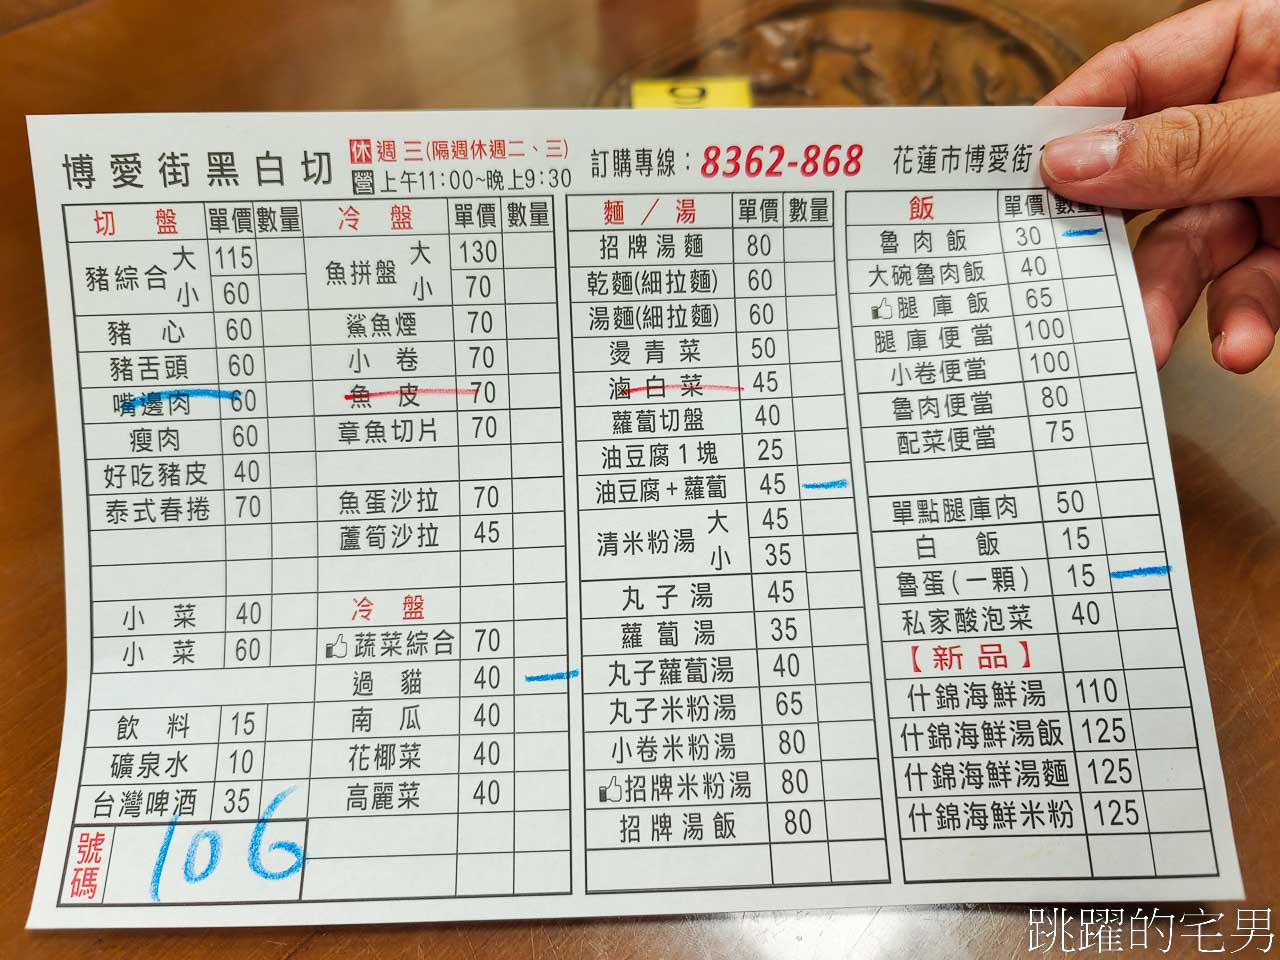 博愛街黑白切
休 週三(隔週休週二、三)
營 上午11:00~晚上9:30
訂購專線：8362-868
花蓮市博愛街
切盤 單價 數量
豬綜合 大 115
小 60
豬心 60
豬舌頭 60
嘴邊肉 60
瘦肉 60
好吃豬皮 40
泰式春捲 70
小菜 40
小菜 60
飲料 15
礦泉水 10
台灣啤酒 35
號碼 106
冷盤 單價 數量
魚拼盤 大 130
小 70
鯊魚煙 70
小卷 70
魚皮 70
章魚切片 70
魚蛋沙拉 70
蘆筍沙拉 45
冷盤
蔬菜綜合 70
過貓 40
南瓜 40
花椰菜 40
高麗菜 40
麵／湯 單價 數量
招牌湯麵 80
乾麵(細拉麵) 60
湯麵(細拉麵) 60
燙青菜 50
滷白菜 45
蘿蔔切盤 40
油豆腐1塊 25
油豆腐+蘿蔔 45
清米粉湯 大 45
小 35
丸子湯 45
蘿蔔湯 35
丸子蘿蔔湯 40
丸子米粉湯 65
小卷米粉湯 80
招牌米粉湯 80
招牌湯飯 80
飯 單價 數量
魯肉飯 30
大碗魯肉飯 40
腿庫飯 65
腿庫便當 100
小卷便當 100
魯肉便當 80
配菜便當 75
單點腿庫肉 50
白飯 15
魯蛋(一顆) 15
私家酸泡菜 40
【新品】
什錦海鮮湯 110
什錦海鮮湯飯 125
什錦海鮮湯麵 125
什錦海鮮米粉 125
跳躍的宅男